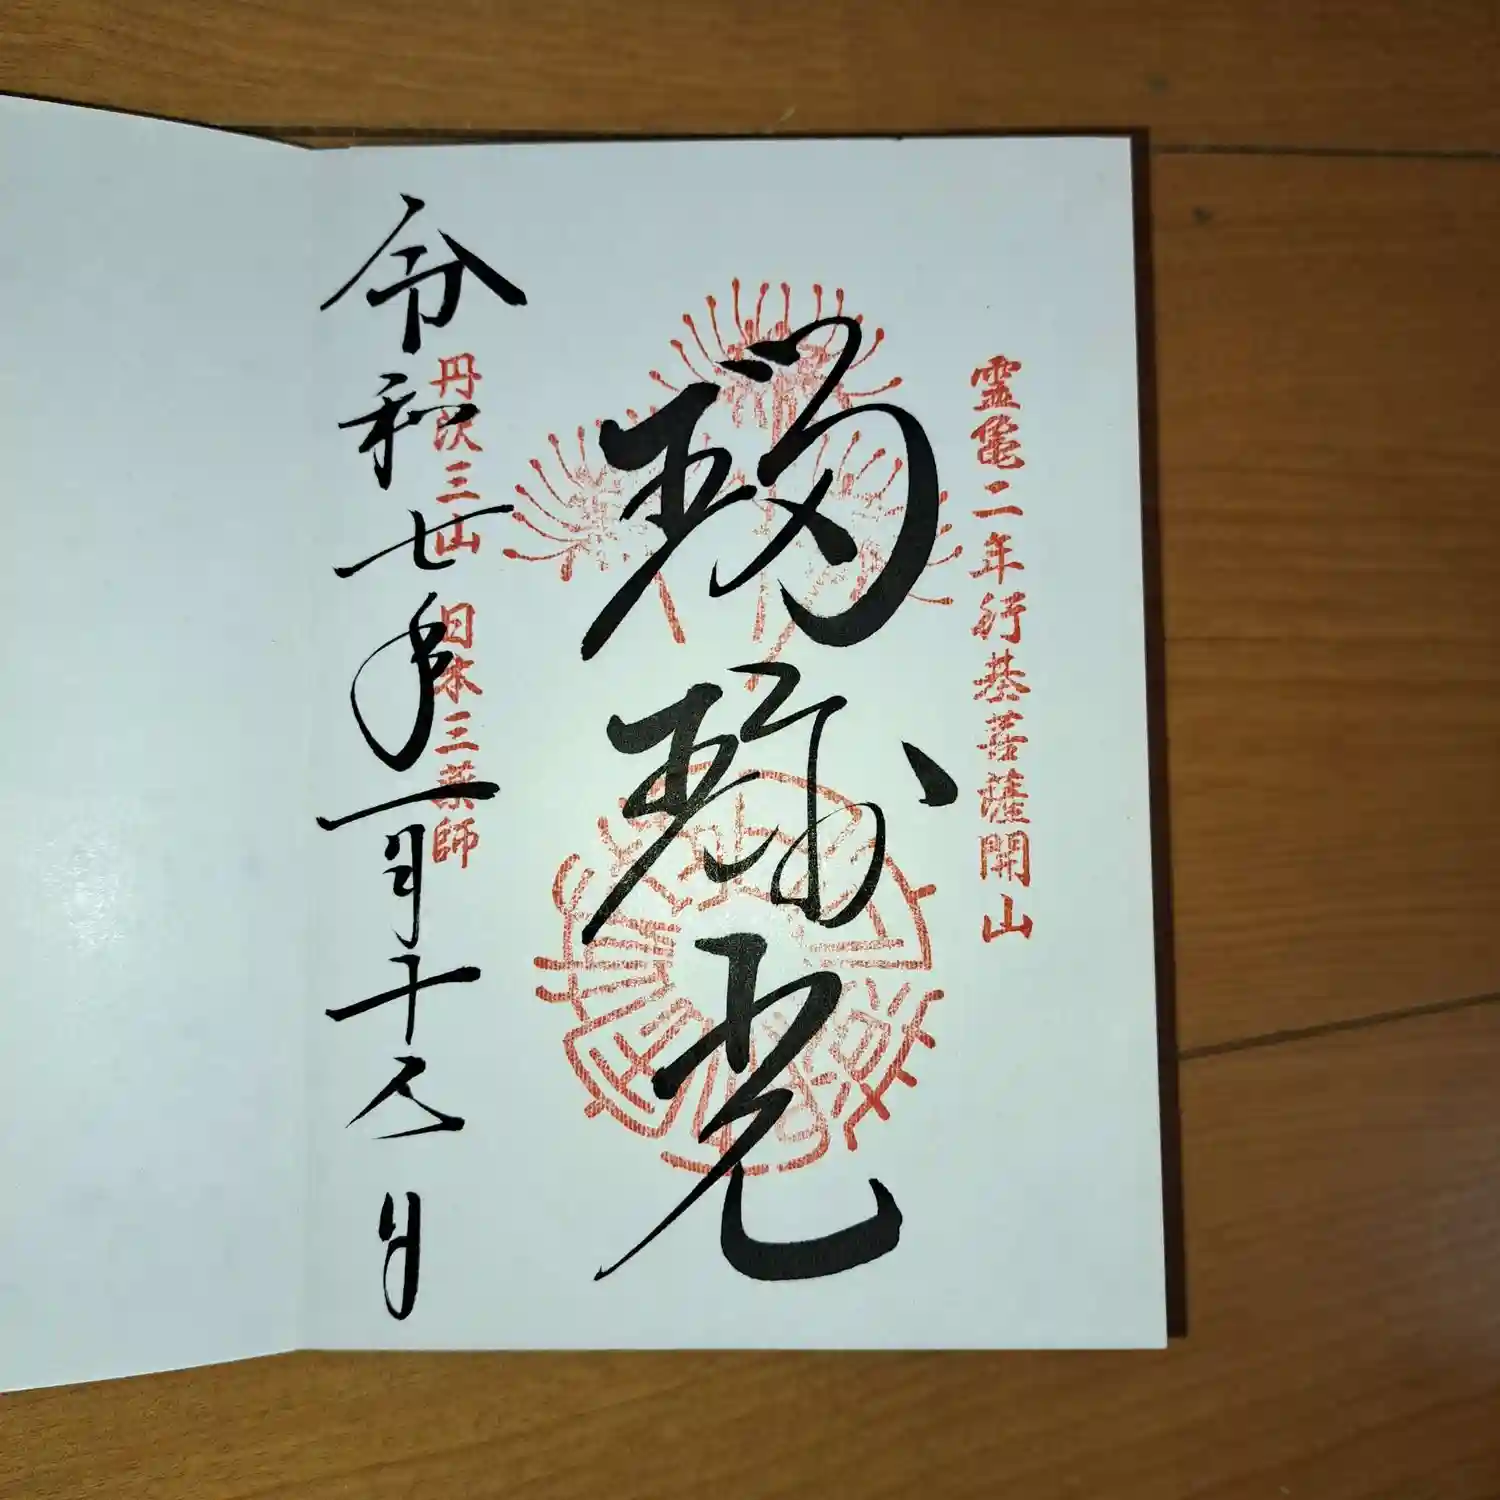 霊亀二年行基菩薩開山
瑠璃光
丹波三山 日本三薬師
令和七年一月十八日